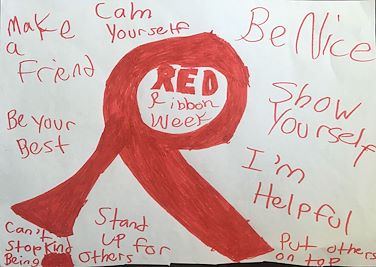 Make
a
Friend
Calm
Yourself
Be Nice
RED
Ribbon
Week
Be Your
Best
Show
Yourself
I'm
Helpful
Can't
stop kind
Being
Stand
up for
others
Put others
on top